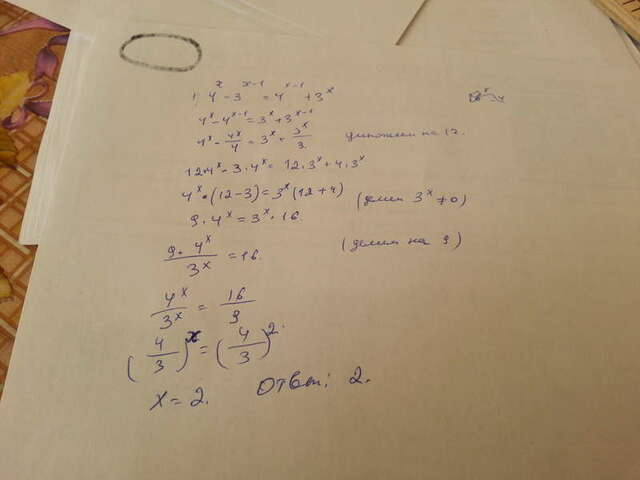 1) 4^x - 3^(x-1) = 4^(x-1) + 3^x
4^x - 4^(x-1) = 3^x + 3^(x-1)
4^x - 4^x/4 = 3^x + 3^x/3 домножим на 12.
12·4^x - 3·4^x = 12·3^x + 4·3^x
4^x·(12-3) = 3^x(12+4)
9·4^x = 3^x·16. (делим 3^x ≠ 0)
9·4^x/3^x = 16. (делим на 9)
4^x/3^x = 16/9
(4/3)^x = (4/3)^2.
x = 2. Ответ: 2.